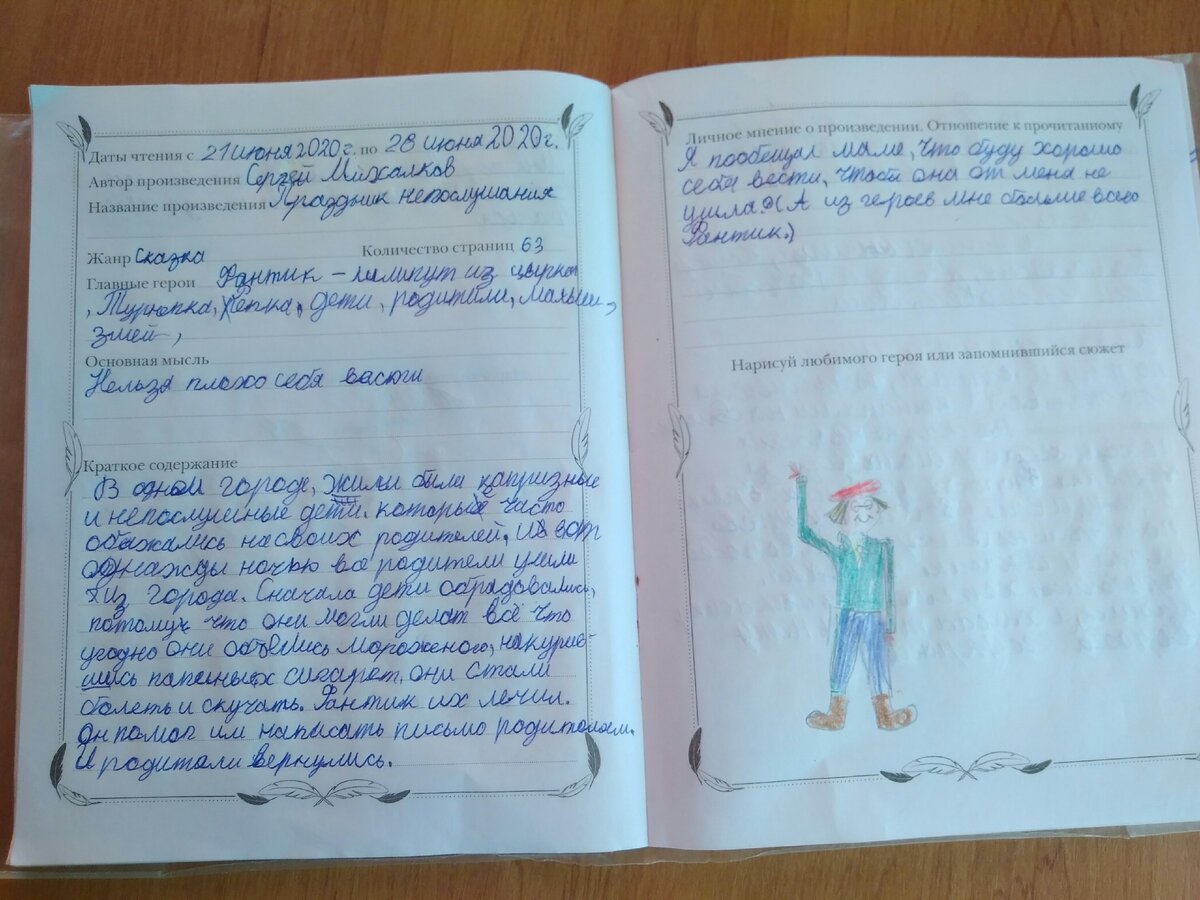 Даты чтения с 21 июня 2020 г. по 28 июня 2020 г.
Автор произведения Сергей Михалков
Название произведения Праздник непослушания
Жанр Сказка Количество страниц 63
Главные герои Фантик – лилипут из цирка
, Турнепка, Репка, дети, родители, малыши,
змей,
Основная мысль
Нельзя плохо себя васти
Краткое содержание
В одном городе, жили были капризные
и непослушные дети. которые часто
обажались на своих родителей. И вот
однажды ночью все родители ушли
из города. Сначала дети обрадовались,
потому что они могли делат всё что
угодно они обьелись мороженого, накурив-
шись папеных сигарет, они стали
болеть и скучать. Фантик их лечил.
Он помог им написать письмо родителям.
И родители вернулись.
Личное мнение о произведении. Отношение к прочитанному
Я пообещал маме, что буду хорошо
себя вести, чтоб она от меня не
ушла. (А из героев мне больше всего
Фантик.)
Нарисуй любимого героя или запомнившийся сюжет